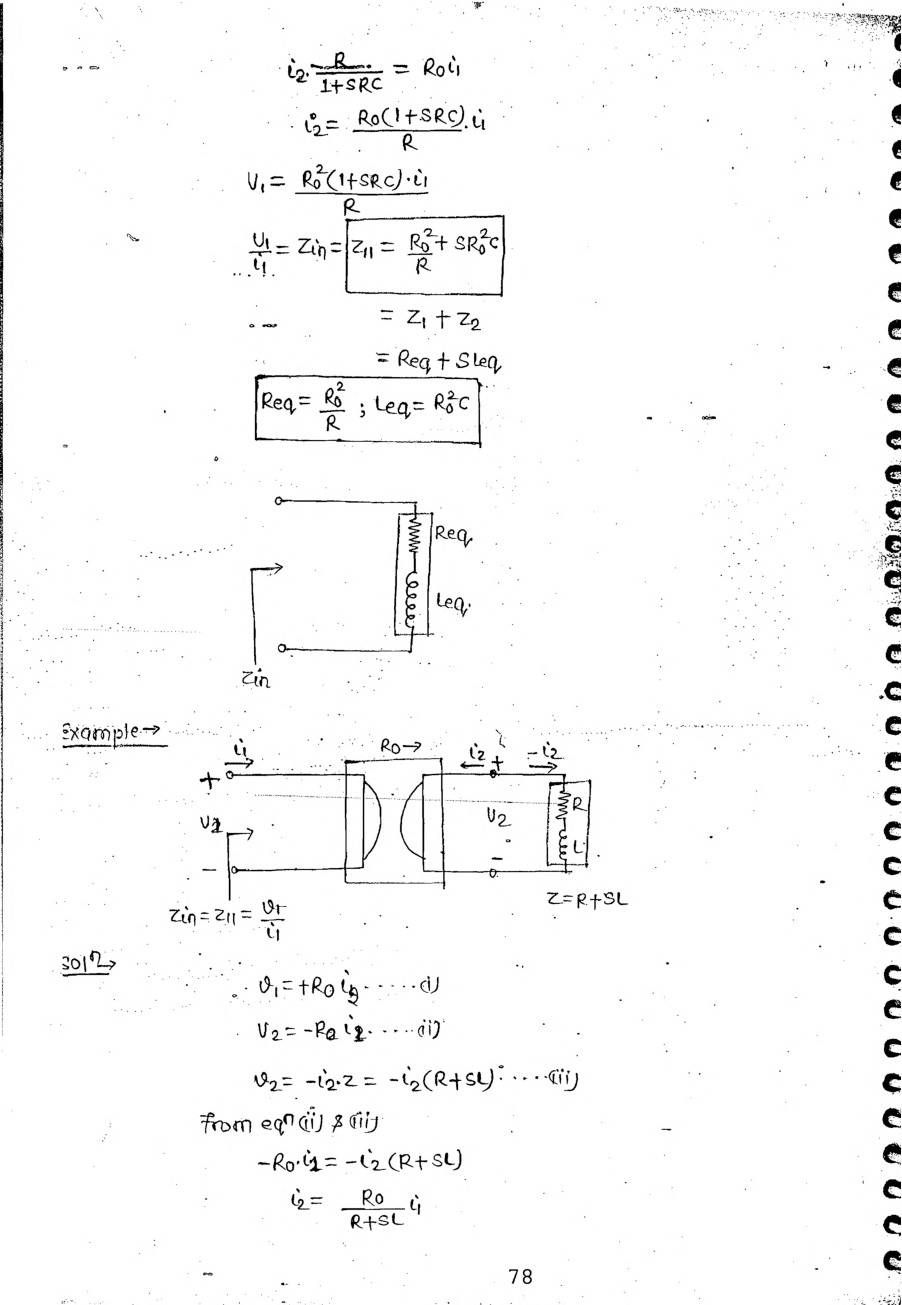 i2. R/(1+SRC) = R0i1
i2 = R0(1+SRC)/R . i1
V1 = R0²(1+SRC)·i1/R
V1/i1 = Zin = Z11 = R0²/R + SR0²C
= Z1 + Z2
= Req + SLeq
Req = R0²/R ; Leq = R0²C
Req
Leq
Zin
Example→
i1 R0→ i2 + -i2
+
V1 V2 R
L
- -
Z=R+SL
Zin = Z11 = V1/i1
Solⁿ→
V1 = +R0 i2 .....(i)
V2 = -R0 i1 .....(ii)
V2 = -i2·Z = -i2(R+SL) ....(iii)
From eqⁿ (ii) & (iii)
-R0·i1 = -i2(R+SL)
i2 = R0/(R+SL) i1
78